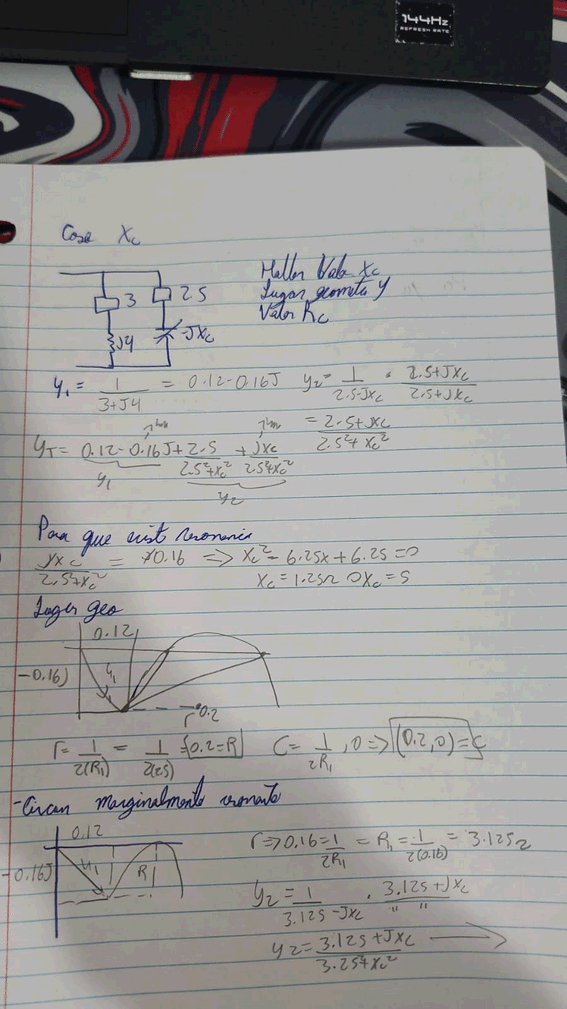 144Hz
REFRESH RATE
Caso Xc
3
2.5
J4
-JXc
Hallar Valor Xc
Lugar geometri Y
Valor Rc
y₁ = 1/(3+J4) = 0.12-0.16J y₂ = 1/(2.5-JXc) · (2.5+JXc)/(2.5+JXc)
= (2.5+JXc)/(2.5²+Xc²)
YT = 0.12-0.16J + 2.5/(2.5²+Xc²) + JXc/(2.5²+Xc²)
y₁ y₂
Para que exist resonancia
JXc/(2.5²+Xc²) = J0.16 => Xc² - 6.25X + 6.25 = 0
Xc = 1.25Ω O Xc = 5
Lugar geo
0.12
-0.16J
y₁
r 0.2
r = 1/(2(R₁)) = 1/(2(2.5)) = 0.2 = R C = 1/(2R₁), 0 => (0.2, 0) = C
- Circun marginalmente resonante
0.12
-0.16J
y₁
R
r => 0.16 = 1/(2R₁) = R₁ = 1/(2(0.16)) = 3.125Ω
y₂ = 1/(3.125-JXc) · (3.125+JXc)/(" ")
y₂ = (3.125+JXc)/(3.25²+Xc²) →